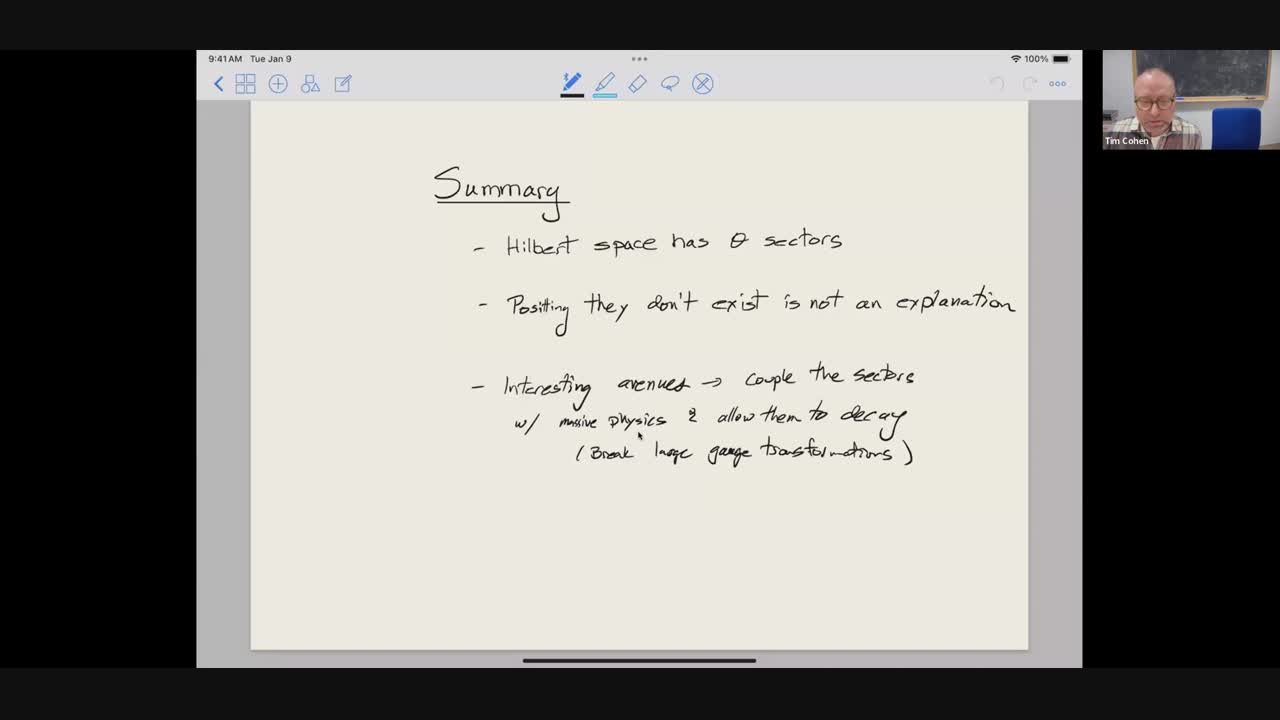 9:41 AM Tue Jan 9
100%
Tim Cohen
Summary
- Hilbert space has θ sectors
- Positing they don't exist is not an explanation
- Interesting avenues → couple the sectors
w/ massive physics & allow them to decay
(Break large gauge transformations)